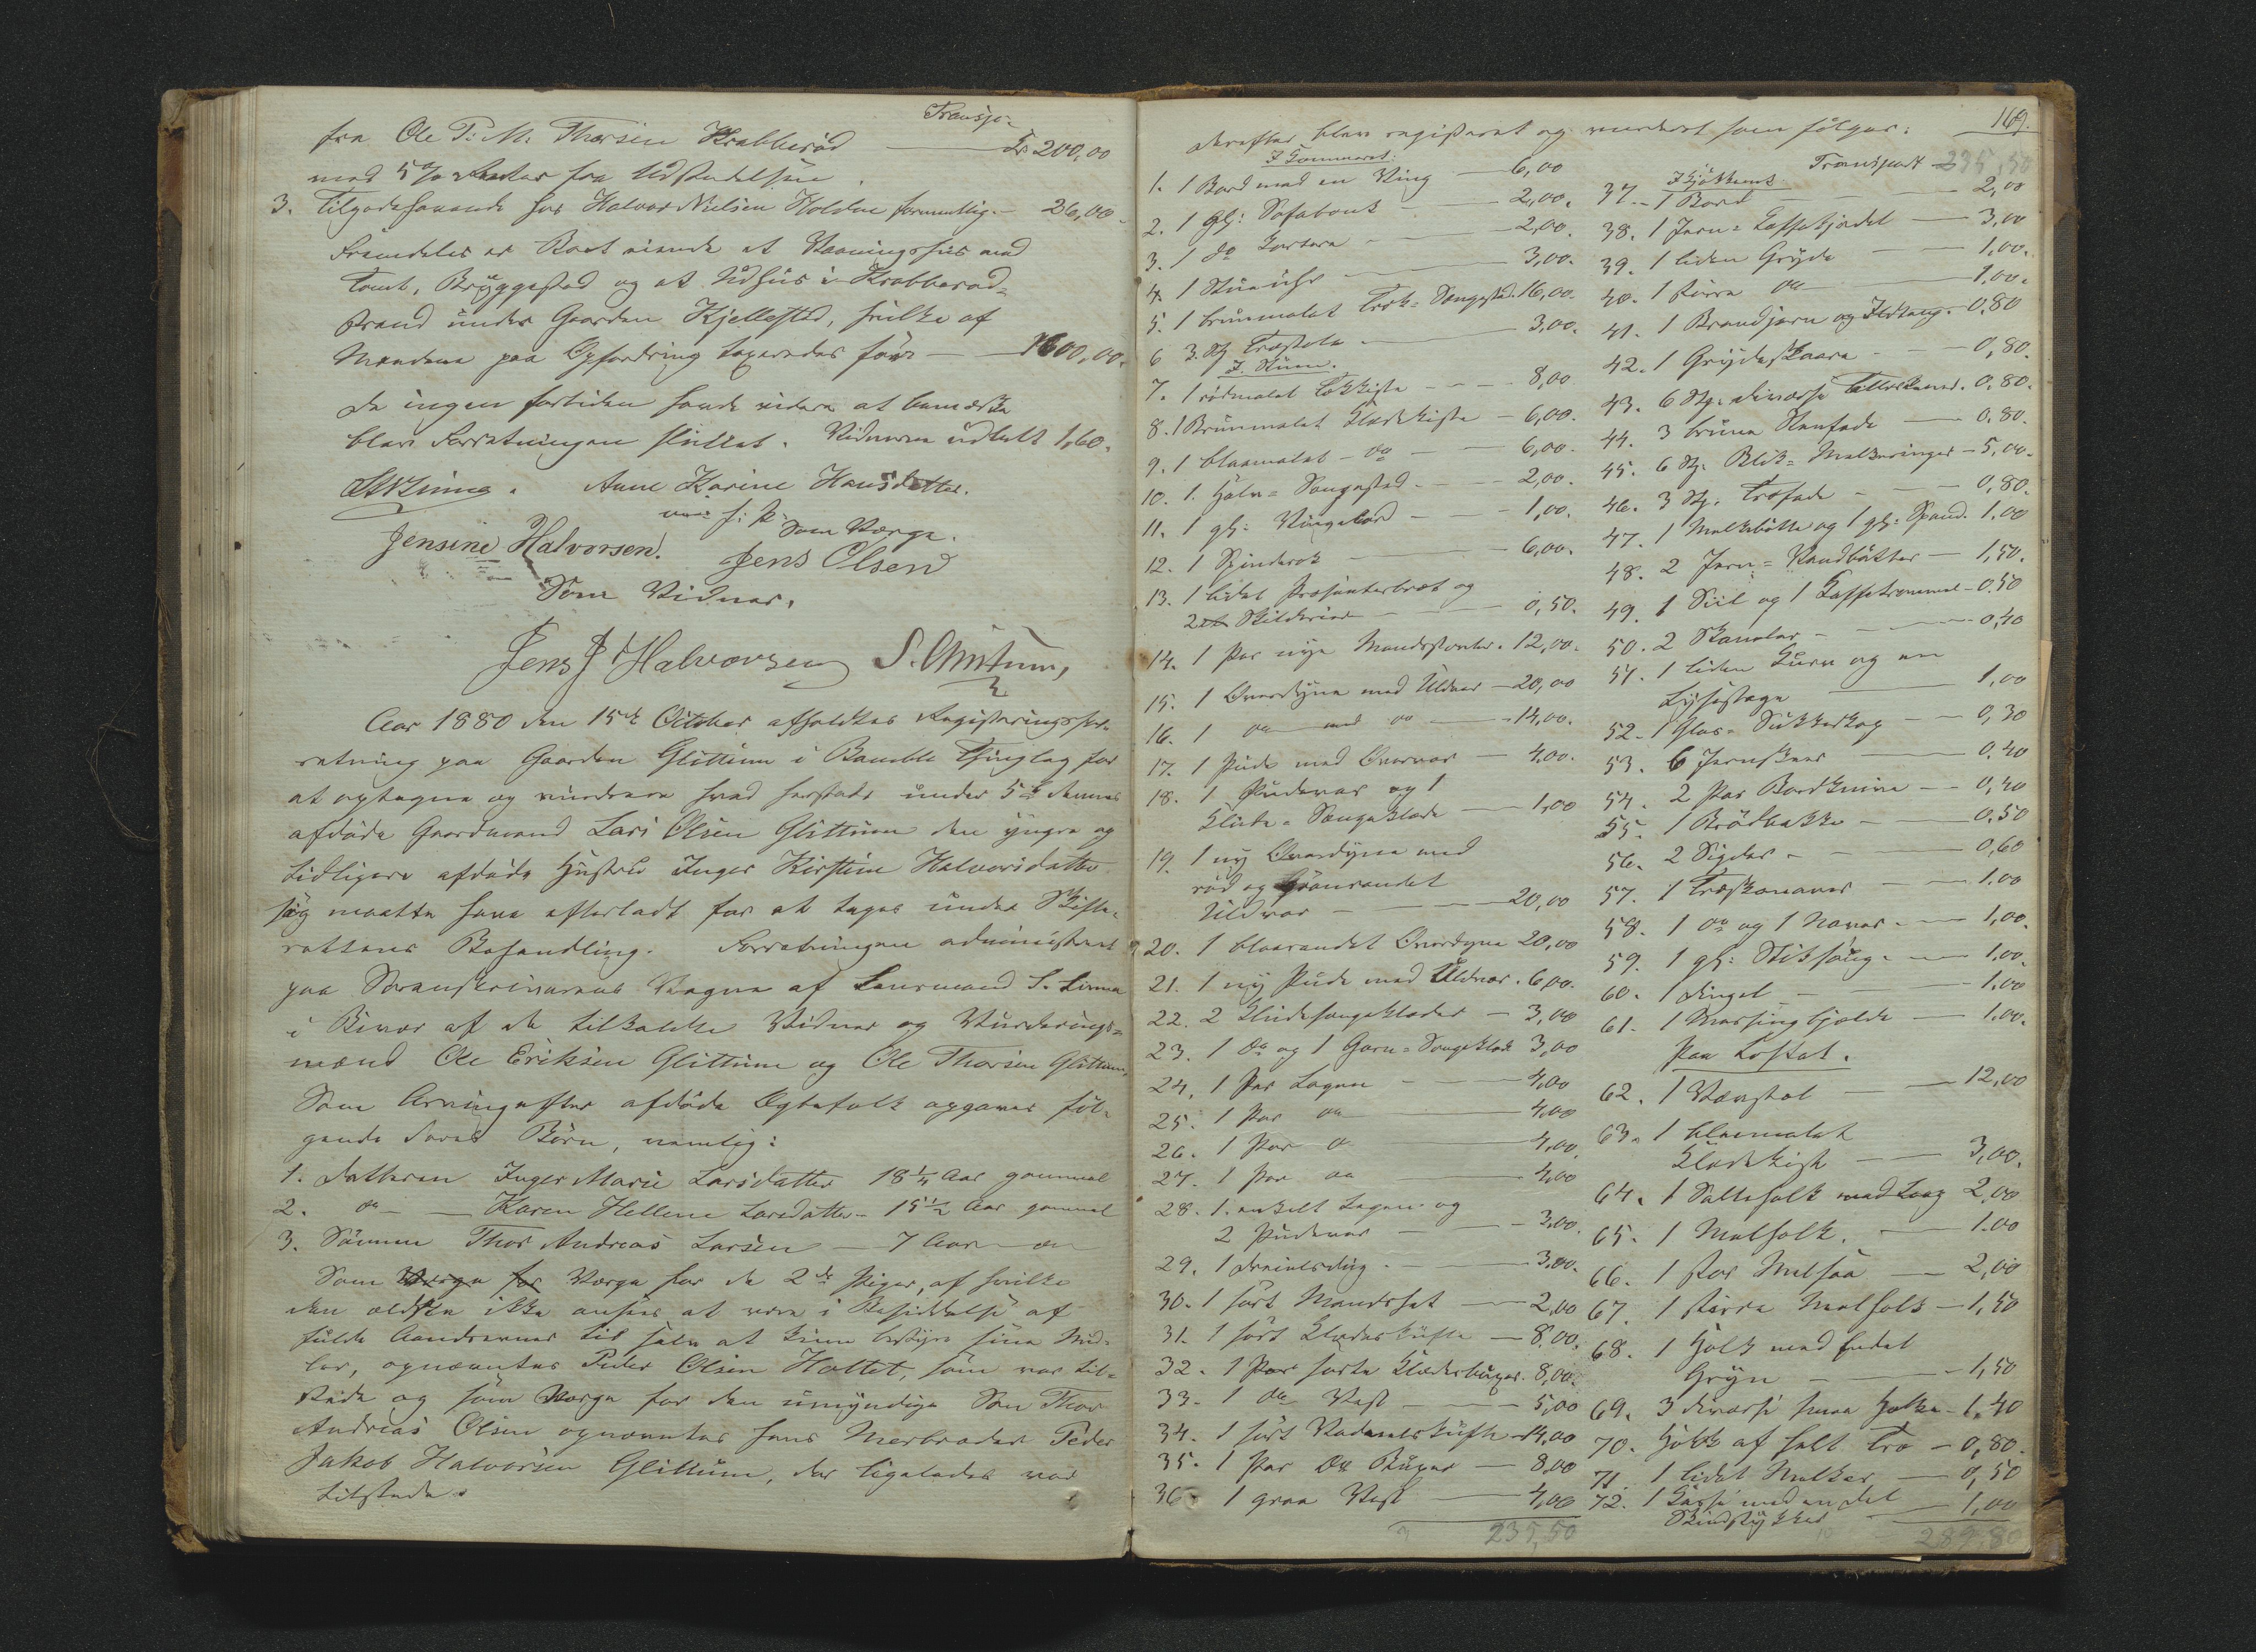 Transp:
fra Ole P: M. Thorsen Krabberød — Kr 200,00
med 5 % Renter fra Udstedelsen
3. Tilgodehavende hos Halvor Nielsen Holden formentlig. - 26,00.
Fremdeles er Boet eiende et Vaaningshus med
Tomt, Bryggested og et Udhus i Krabberød=
strand under Gaarden Kjellestad, hvilke af
Mændene paa Opfordring taxeredes for — 1600,00.
Da ingen fortiden havde videre at bemærke
blev Forretningen sluttet. Vidnerne udbetalt 1,60.
Anne Karine Hansdatter.
m: f: P:
Som Værge.
Jensine Halvorsen. Jens Olsen
Som Vidner.
Jens J Halvorsen
Aar 1880 den 15de October afholdtes Registreringsfor-
retning paa Gaarden Glittum i Bamble Thinglag for
at optegne og vurdere hvad herstedts under 5te dennes
afdøde Gaardmand Lars Olsen Glittum den yngre og
tidligere afdøde Hustru Inger Kirstine Halvorsdatter
sig maatte have efterladt for at tages under Skifte-
rettens Behandling. Forretningen administreret
paa Sorenskriverens Vegne af Lensmand S. Linna
i Bivær af de tilkaldte Vidner og Vurderings=
mænd Ole Eriksen Glittum og Ole Thorsen Glittum,
Som Arvinger efter afdøde Ægtefolk opgaves føl-
gende deres Børn, nemlig:
1. Datteren Inger Marie Larsdatter 18 1/4 Aar gammel
2. do — Karen Hellene Larsdatter - 15 1/2 Aar gammel
3. Sønnen Thor Andreas Larsen — 7 Aar do
Som Værge for Værge for de 2de Piger, af hvilke
den ældste ikke ansees at være i Besiddelse af
fulde Aandsevner til selv at kunne bestyre sine Mid-
ler, opnævntes Peder Olsen Hottet, som var til-
stede og som Værge for den umyndige Søn Thor
Andreas Olsen opnævntes hans Morbroder Peder
Jakob Halvorsen Glittum, der ligeledes var
tilstede.
169.
Derefter blev registreret og vurderet som følger:
I Kammeret:
1. 1 Bord med en Ving — 6,00
2. 1 gl: Sofabænk - — 2,00.
3. 1 do - — 2,00.
4. 1 Stueuhr — 3,00.
5. 1 brunmalet Træk= Sengested. 16,00.
6 3 St. Træstole — 3,00.
I Stuen.
7. 1 rødmalet Lokkiste - - - 8,00
8. 1 Brunmalet Klædekiste — 6,00.
9. 1 blaamalet - do — 6,00.
10. 1. Halv= Sengested. - — 2,00
11. 1 gl: Vingebord — 1,00.
12. 1 Spinderok — 6,00.
13. 1 lidet Præsenterbret og
2 St Skilderier — 0,50.
14. 1 Par nye Mandsstøvler. 12,00.
15. 1 Overdyne med Uldvar — 20,00
16. 1 do med do — 14,00.
17. 1 Pude med Overvar — 4,00.
18. 1 Pudevar og 1
Klude= Sengeklæde — 1,00
19. 1 ny Overdyne med
rød og grønrandet
Uldvar - — 20,00
20. 1 blaarandet Overdyne 20,00
21. 1 ny Pude med Uldvar. 6,00.
22. 2 Kludesengeklæder — 3,00
23. 1 do og 1 Garn= Sengeklæde 3,00
24. 1 Par Lagen - — 4,00
25. 1 Par do — 4,00
26. 1 Par do — 4,00
27. 1 Par do — 4,00
28. 1. enkelt Lagen og
2 Pudevar — 3,00.
29. 1 Dreielsdug. — 3,00.
30. 1 sort Mandshat — 2,00
31. 1 sort Klædeskufte — 8,00.
32. 1 Par sorte Klædesbuxer. 8,00.
33. 1 do Vest — 5,00
34. 1 sort Vadmelskufte - 14,00
35. 1 Par do Buxer — 8,00
36. 1 graa Vest — 4,00
235,50
Transport 235,50
I Kjøkkenet
37. - 1 Bord — 2,00
38. 1 Jern= Kaffekjedel — 3,00
39. 1 liden Gryde — 1,00.
40. 1 større do — 1,00.
41. 1 Brandjern og Ildtang. 0,80
42. 1 Grydeskaare - — 0,80.
43. 6 St. diverse Tallerkener. 0,80.
44. 3 brune Stenfade — 0,80.
45. 6 St. Blik= Melkeringer — 5,00.
46. 3 St. Træfade - — 0,80.
47. 1 Melkebøtte og 1 gl: Spand. 1,00
48. 2 Jern= Vandbøtter — 1,50.
49. 1 Siil og 1 Kaffetrommel — 0,50
50. 2 Skamler - — 0,40
51. 1 liden Kurv og en
Lysestage — 1,00
52. 1 Glas= Sukkerkop - — 0,30
53. 6 Jernskeer — 0,40
54. 2 Par Bordknive — 0,40
55. 1 Brødbakke - — 0,50
56. 2 Sigder - — 0,60
57. 1 Træskonaver — 1,00
58. 1 do og 1 Naver. — 1,00.
59. 1 gl: Stiksaug. — 1,00.
60. 1 Dingel - — 1,00
61. 1 Messingbjelde — 1,00.
Paa Loftet.
62. 1 Vævstol — 12,00
63. 1 blaamalet
Klædekiste — 3,00.
64. 1 Salteholk med Laag 2,00
65. 1 Melholk. — 1,00
66. 1 stor Melsaa — 2,00
67. 1 større Melholk — 1,50
68. 1 Holk med endel
Gryn - — 1,50
69. 3 diverse smaa Holke — 1,40
70. Holk af helt Træ — 0,80.
71. 1 lidet Melkar — 0,50
72. 1 Kasse med en del
Skindstykker — 1,00
289,80